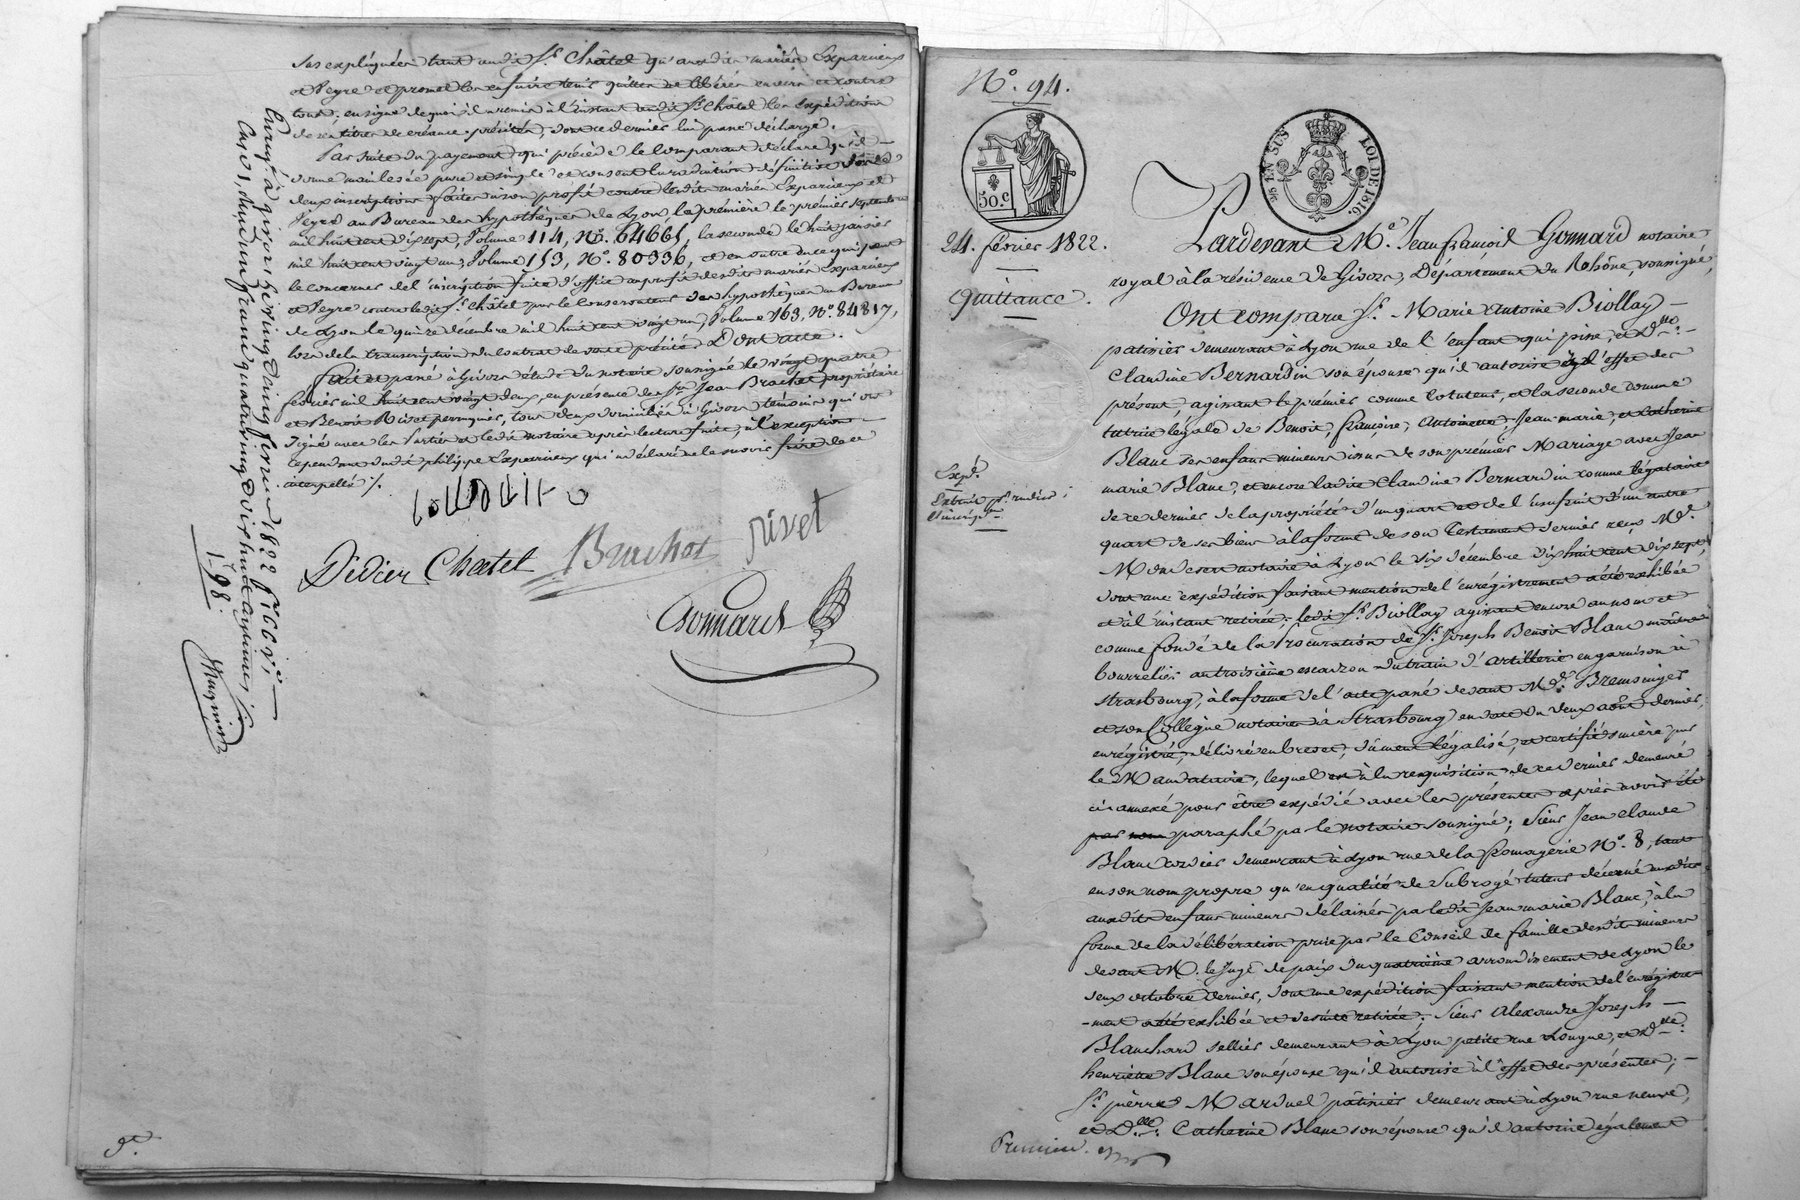 sus expliquées tant audit Sr. Châtel qu'auxdits mariés Exparieux
et Peyre et promet les en faire tenir quittes et libérés envers et contre
tous; en signe de quoi il a remis à l'instant audit Sr. Châtel les expéditions
de ses titres de créance précités, dont ce dernier lui passe décharge.
Par suite du payement qui précède le comparant déclare qu'il
donne mainlevée pure et simple et consent la radiation définitive des
deux inscriptions faites à son profit contre lesdits mariés Exparieux et
Peyre au Bureau des hypothèques de Lyon, la première le premier septembre
mil huit cent dix sept, Volume 114, No. 64661, la seconde le huit janvier
mil huit cent vingt un, Volume 153, No. 80336, et en outre en ce qui peut
le concerner de l'inscription faite d'office au profit desdits mariés Exparieux
et Peyre contre ledit Sr. Châtel par le Conservateur des hypothèques au Bureau
de Lyon le quinze décembre mil huit cent vingt un, Volume 163, No. 84817,
lors de la transcription du contrat de vente précité. Dont acte.
Fait et passé à Givors étude du notaire soussigné le vingt quatre
février mil huit cent vingt deux, en présence des Srs. Jean Brachet propriétaire
et Benoit Rivet perruquier, tous deux domiciliés à Givors témoins qui ont
signé avec les Parties et ledit notaire après lecture faite, à l'exception
cependant dudit philippe Exparieux qui a déclaré ne le savoir faire de ce
interpellé ./.
Didier Chatel Brachet Rivet
Gonnard
Enregé. à givors le vingt cinq février 1822 fo. 166 vo.
Case 1, reçu un franc quatre vingt dix huit centimes
1f. 98.
9e.
No. 94.
50.c
95. EN SUS LOI DE 1816.
24. février 1822.
Quittance.
Expé.
Pardevant Me. Jean françois Gonnard notaire
royal à la résidence de Givors, Département du Rhône, soussigné,
Ont comparu Sr. Marie Antoine Biollay
patissier demeurant à Lyon rue de l'enfant qui pisse, et Dme.
Claudine Bernardin son épouse qu'il autorise à l'effet des
présentes, agissant le premier comme cotuteur, et la seconde comme
tutrice légale de Benoit, françoise, Antoinette, Jean marie, et Catherine
Blanc ses enfans mineurs issus de son premier Mariage avec Jean
marie Blanc, et encore ladite Claudine Bernardin comme légataire
de ce dernier de la propriété d'un quart et de l'usufruit d'un autre
quart de ses biens à la forme de son Testament dernier reçu Me.
notaire à Lyon le dix décembre dix huit cent dix sept,
dont une expédition faisant mention de l'enregistrement a été exhibée
et à l'instant retirée; ledit Sr. Biollay agissant encore au nom et
comme fondé de la Procuration de Sr. Joseph Benoit Blanc maître
bourrelier au troisième escadron du train d'artillerie en garnison à
Strasbourg, à la forme de l'acte passé devant Me. Bremsinger
et son Collègue notaires à Strasbourg, en date du deux août dernier,
enregistré, délivré en brevet, dûment légalisé, et certifié sincère par
le Mandataire, lequel est à la requisition de ce dernier demeuré
ci annexé pour être expédié avec les présentes après avoir été
par nous paraphé par le notaire soussigné; Sieur Jean claude
Blanc cordier demeurant à Lyon rue de la fromagerie No. 8, tant
en son nom propre qu'en qualité de Subrogé tuteur décerné
auxdits enfans mineurs délaissés par ledit Jean marie Blanc, à la
forme de la délibération prise par le Conseil de famille desdits mineurs
devant M. le Juge de paix du quatrième arrondissement de Lyon le
deux octobre dernier, dont une expédition faisant mention de l'enregistre-
-ment a été exhibée et de suite retirée; Sieur Alexandre Joseph
Blanchard sellier demeurant à Lyon petite rue Longue, et Dme.
henriette Blanc son épouse qu'il autorise à l'effet des présentes;
Sr. pierre Marduel patissier demeurant à Lyon rue neuve,
et Dme. Catherine Blanc son épouse qu'il autorise également
Premier.